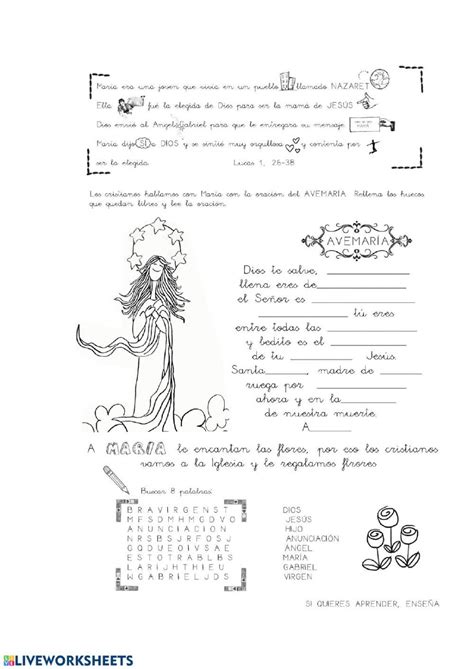 María era una joven que vivía en un pueblo llamado NAZARET
Ella fué la elegida de Dios para ser la mamá de JESÚS
Dios envió al Ángel Gabriel para que le entregara su mensaje
María dijo SI a DIOS y se sintió muy orgullosa y contenta por
ser la elegida. Lucas 1, 26-38
Los cristianos hablamos con María con la oración del AVEMARÍA. Rellena los huecos
que quedan libres y lee la oración.
AVEMARÍA
Dios te salve, ____________
llena eres de____________
el Señor es ____________
____________ tú eres
entre todas las ____________
y bedito es el ____________
de tu ________ Jesús.
Santa________, madre de ________
ruega por ____________
ahora y en la________
de nuestra muerte.
A____________
A MARÍA le encantan las flores, por eso los cristianos
vamos a la Iglesia y le regalamos flrores
Buscar 8 palabras:
B R A V I R G E N S T
M F S D M H M G D V O
A N U N C I A C I O N
N R S B S J R F O S J
G Q D U E O I V S A E
E S T O T R A B L B S
L A R I J H T H I E U
W G A B R I E L J D S
DIOS
JESÚS
HIJO
ANUNCIACIÓN
ÁNGEL
MARÍA
GABRIEL
VIRGEN
SI QUIERES APRENDER, ENSEÑA
LIVEWORKSHEETS